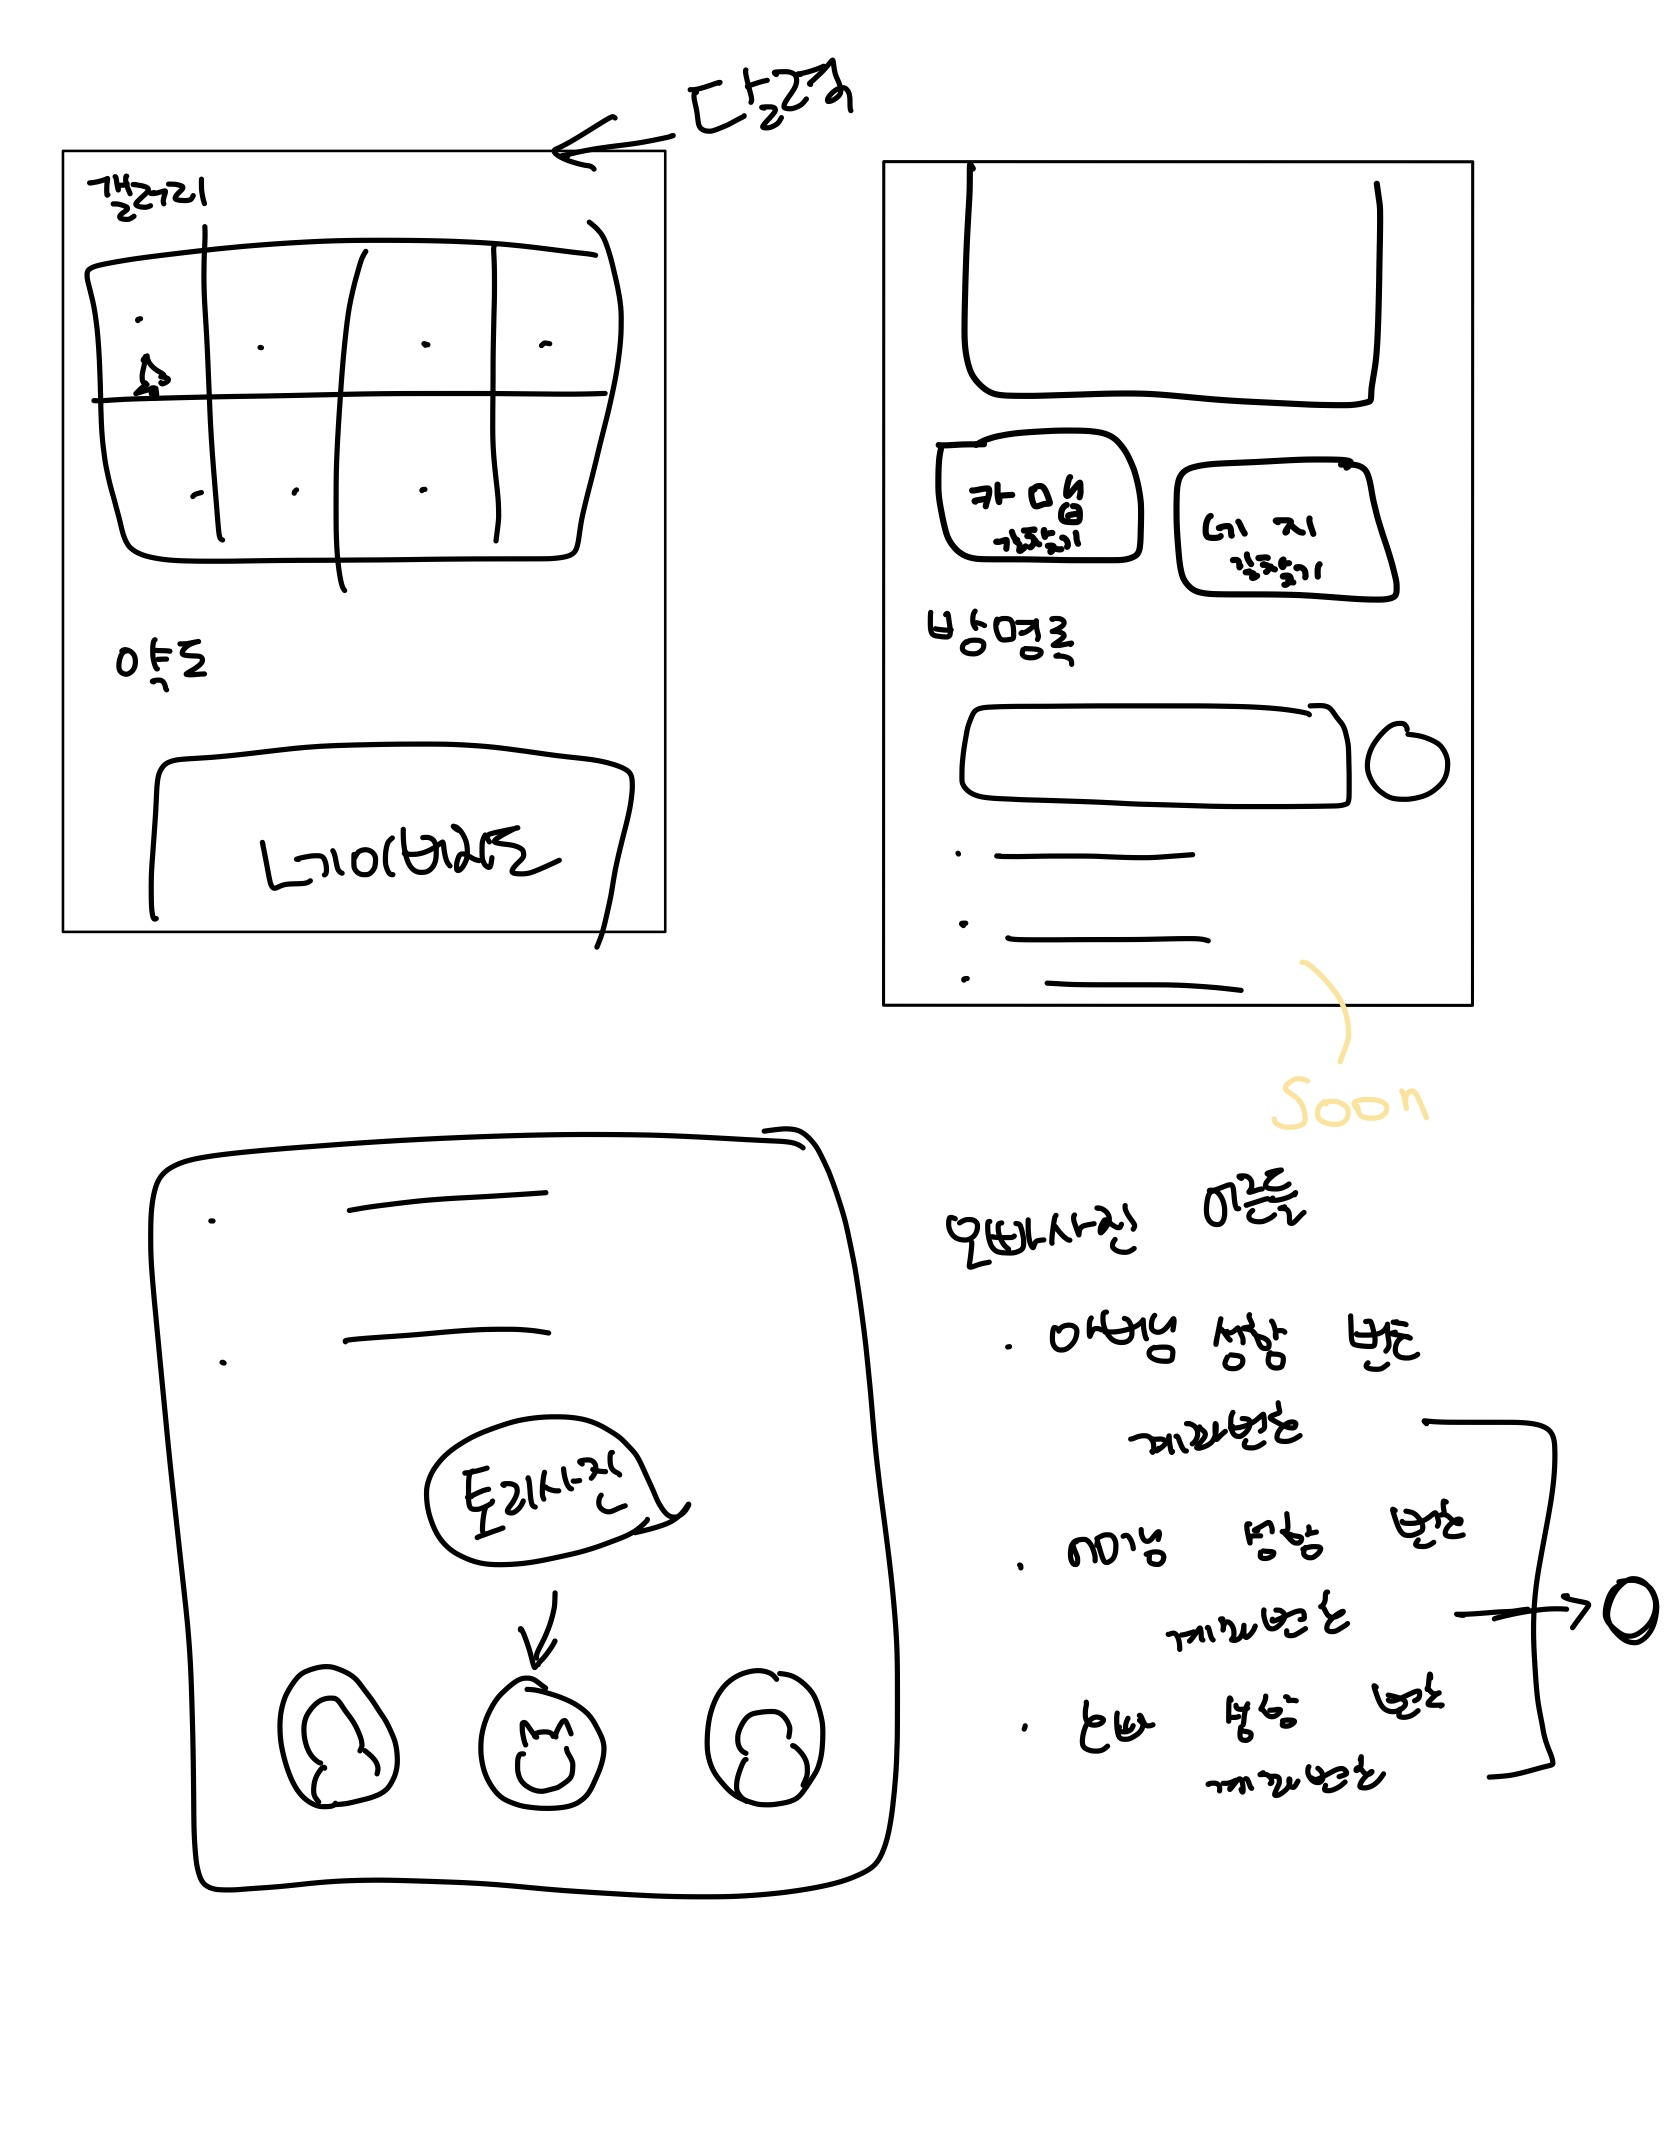 달력
갤러리
약도
네이버지도
카카오맵
길찾기
네이버지도
길찾기
방명록
Soon
토리사진
오빠사진 이름
아버님 성함 번호
계좌번호
어머님 성함 번호
계좌번호
오빠 성함 번호
계좌번호